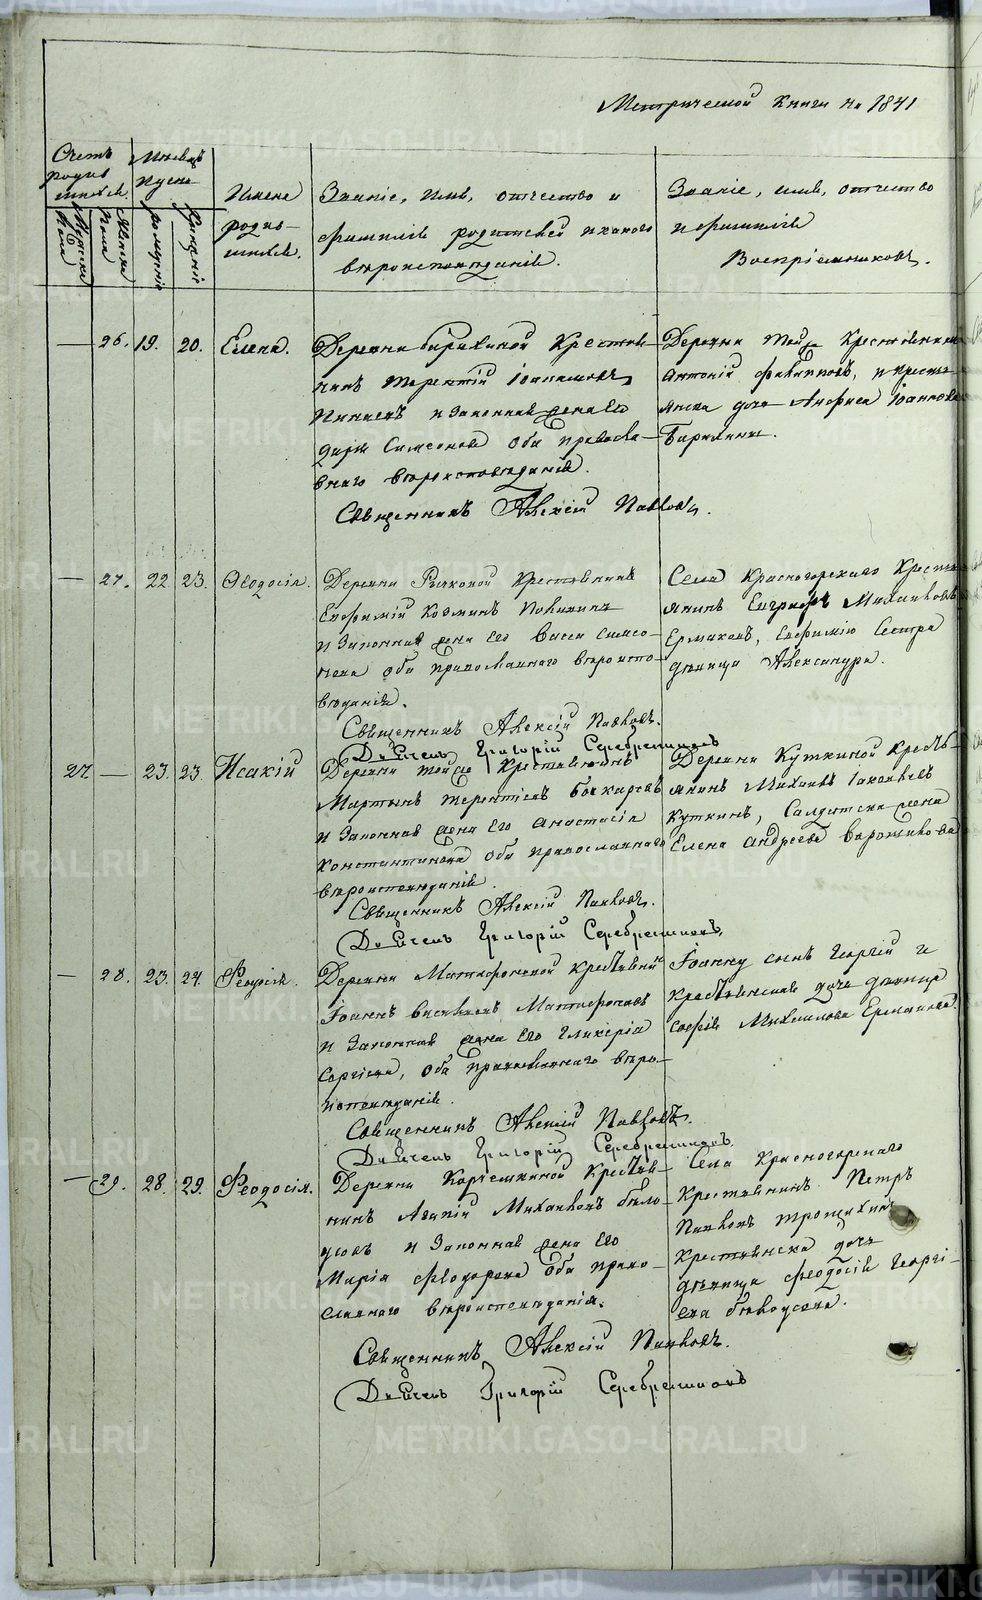 Метрической Книги на 1841
Счетъ родив шихся.
Мужеска Пола
Женска Пола
Мѣсяцъ
Рожденіе
Крещеніе
Имена родив- шихся.
Званіе, Имя, отчество и
фамилія родителей и какого
вѣроисповѣданія.
Званіе, имя, отчество
и фамилія
Воспріемниковъ.
— 26. 19. 20. Елена.
Деревни Бирихиной Крестья
нинъ Терентій
и Законная жена его
Дарія Симеонова Оба Правосла-
внаго вѣроисповѣданія.
Священникъ Алексій Павловъ.
Деревни той же Крестьянинъ
Антоній Филипповъ, и кресть
янска дочь Анфиса Іоаннова
Бирихины.
— 27. 22 23. Ѳеодосія.
Деревни Крестьянинъ
Евфимій Козминъ
и Законная жена его Васса Симео-
нова оба православнаго вѣроиспо-
вѣданія.
Священникъ Алексій Павловъ.
Дьячекъ Григорій Серебренниковъ
Села Красногорскаго Крестья
янинъ Евграфъ Михайловъ
Ермаковъ, Евфимію Сестра
дѣвица Александра.
27 — 23. 23. Исакій
Деревни той же Крестьянинъ
Мартынъ Терентіевъ Бочкаревъ
и Законная жена его Анастасія
Константинова Оба православнаго
вѣроисповѣданія.
Священникъ Алексій Павловъ.
Дьячекъ Григорій Серебренниковъ.
Деревни Куткиной Кресть-
янинъ Михаилъ Іаковлевъ
Куткинъ, Салдатска жена
Елена Андреева Ворошнкова
— 28. 23. 24. Ѳеодосія.
Деревни Крестьянинъ
Іоаннъ Васильевъ
и Законная жена его Гликерія
Сергіева, Оба православнаго вѣро-
исповѣданія.
Священникъ Алексій Павловъ.
Дьячекъ Григорій Серебренниковъ.
Іоанну сынъ Георгій и
Крестьянская дочь дѣвица
Софія Михайлова Ермакова.
— 29. 28. 29. Ѳеодосія.
Деревни Крестья-
нинъ Агапій Михайловъ Бѣло-
усовъ и Законная жена его
Марія Ѳеодорова Оба право-
славнаго вѣроисповѣданія.
Священникъ Алексій Павловъ.
Дьячекъ Григорій Серебренниковъ
Села Красногорскаго
Крестьянинъ Петръ
Павловъ
Крестьянска дочь
дѣвица Ѳеодосія Георгі-
ева Бѣлоусова.
METRIKI.GASO-URAL.RU